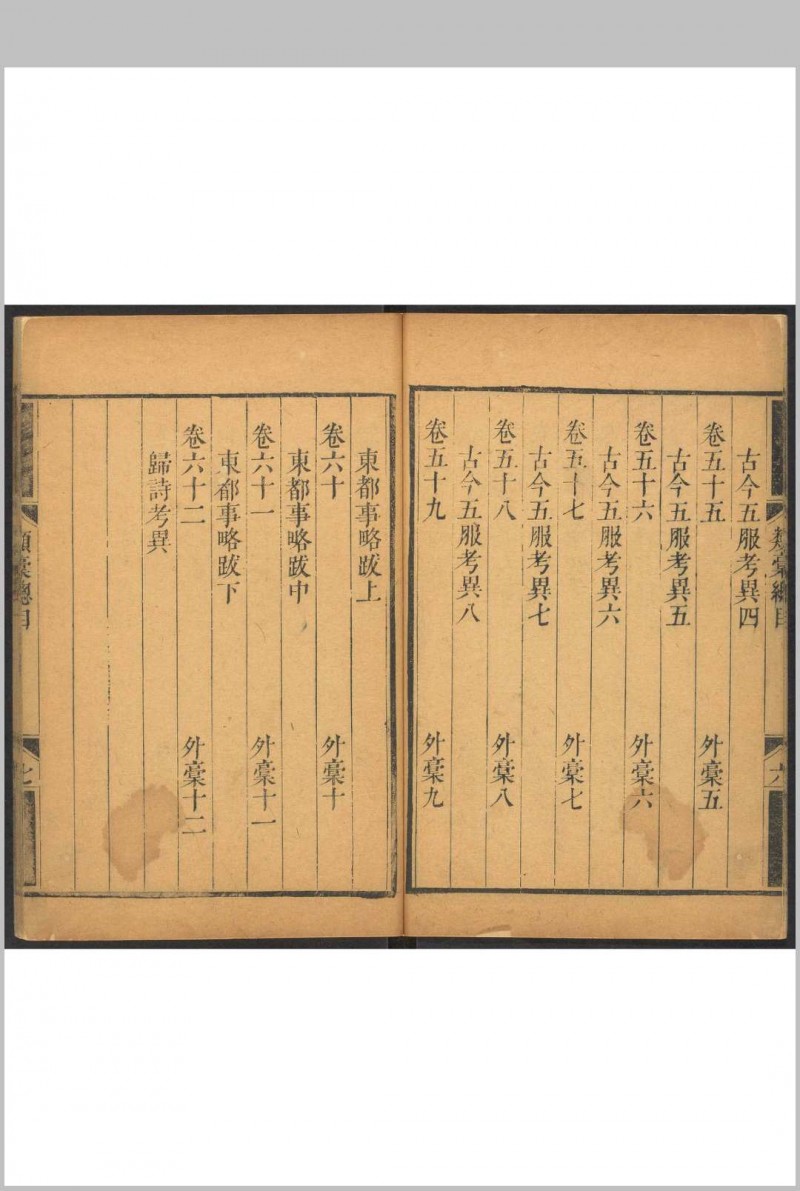 類稾總目
六
古今五服考異四
卷五十五 外稾五
古今五服考異五
卷五十六 外稾六
古今五服考異六
卷五十七 外稾七
古今五服考異七
卷五十八 外稾八
古今五服考異八
卷五十九 外稾九
東都事略跋上
卷六十 外稾十
東都事略跋中
卷六十一 外稾十一
東都事略跋下
卷六十二 外稾十二
歸詩考異
類稾總目
七